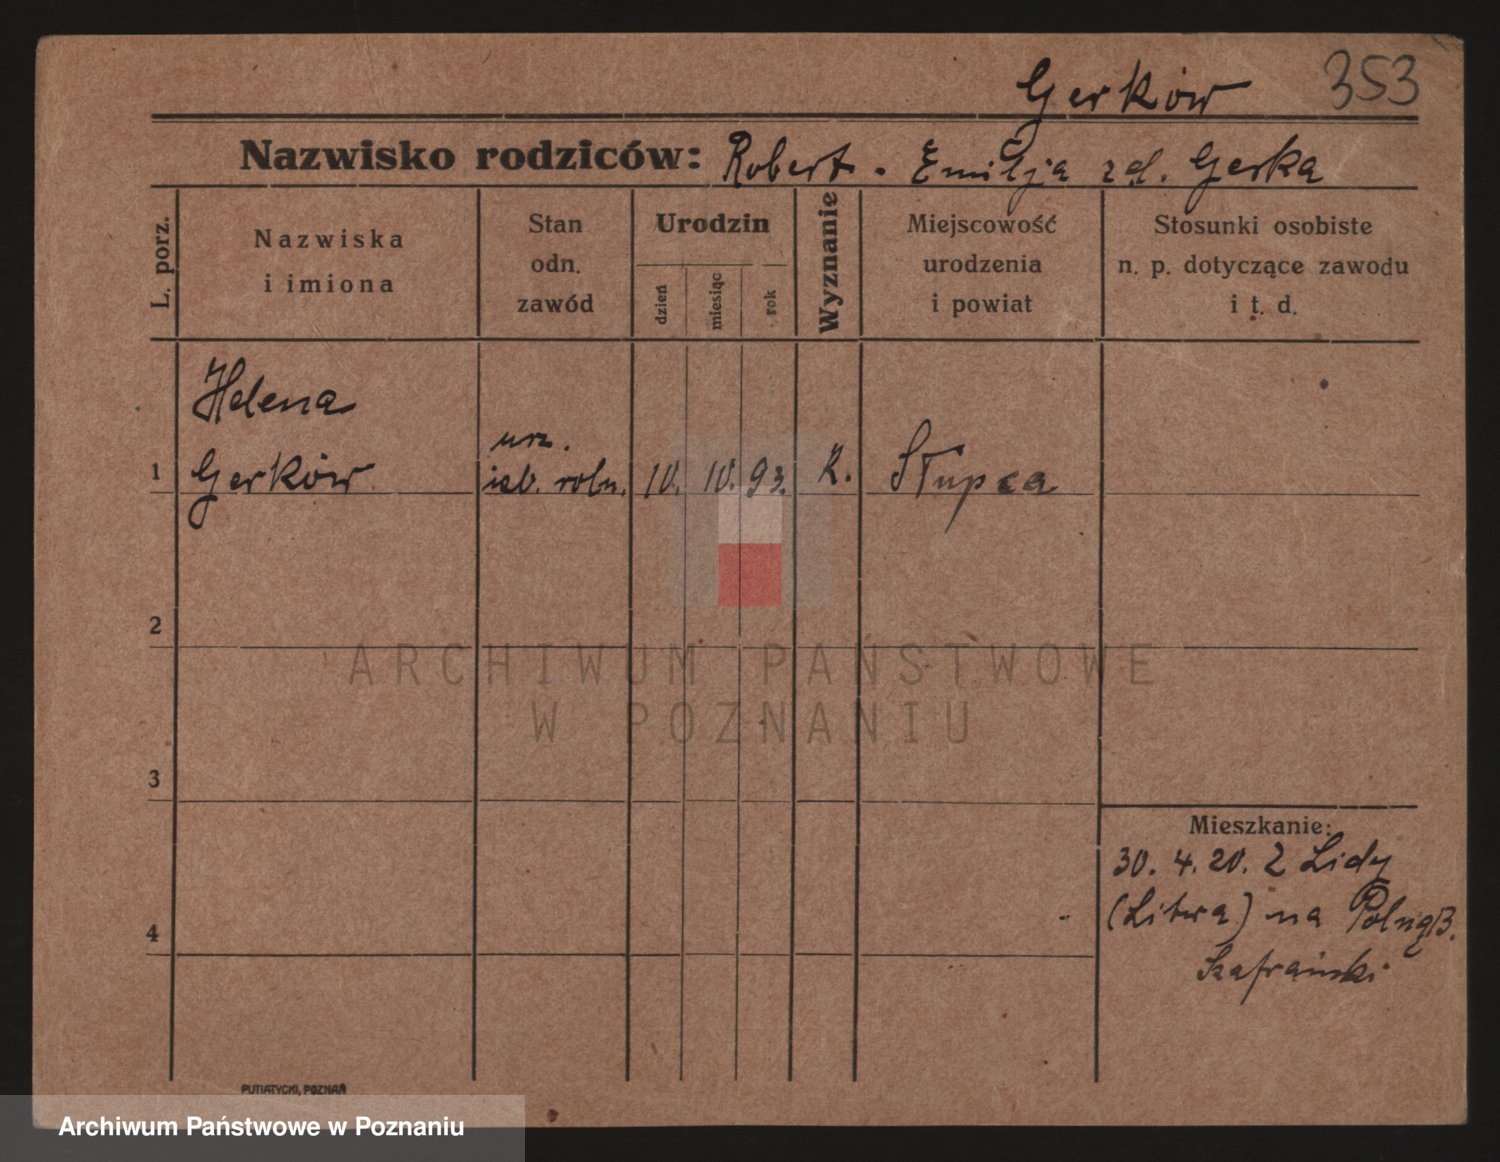 Gerków 353
Nazwisko rodziców: Robert. Emilja zd. Gerka
L. porz.
Nazwiska
i imiona
Stan
odn.
zawód
Urodzin
dzień
miesiąc
rok
Wyznanie
Miejscowość
urodzenia
i powiat
Stosunki osobiste
n. p. dotyczące zawodu
i t. d.
Helena
urz.
1 Gerków izb. roln. 10. 10. 93. K. Słupca
2
3
4
Mieszkanie:
30. 4. 20. Z Lidy
(Litwa) na Polną 3.
Szafrański
PUTIATYCKI, POZNAŃ
ARCHIWUM PAŃSTWOWE
W POZNANIU
Archiwum Państwowe w Poznaniu